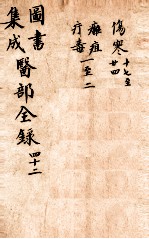 傷寒十七至廿四
癰疽
疔毒一至二
圖書
集成醫部全錄四十二